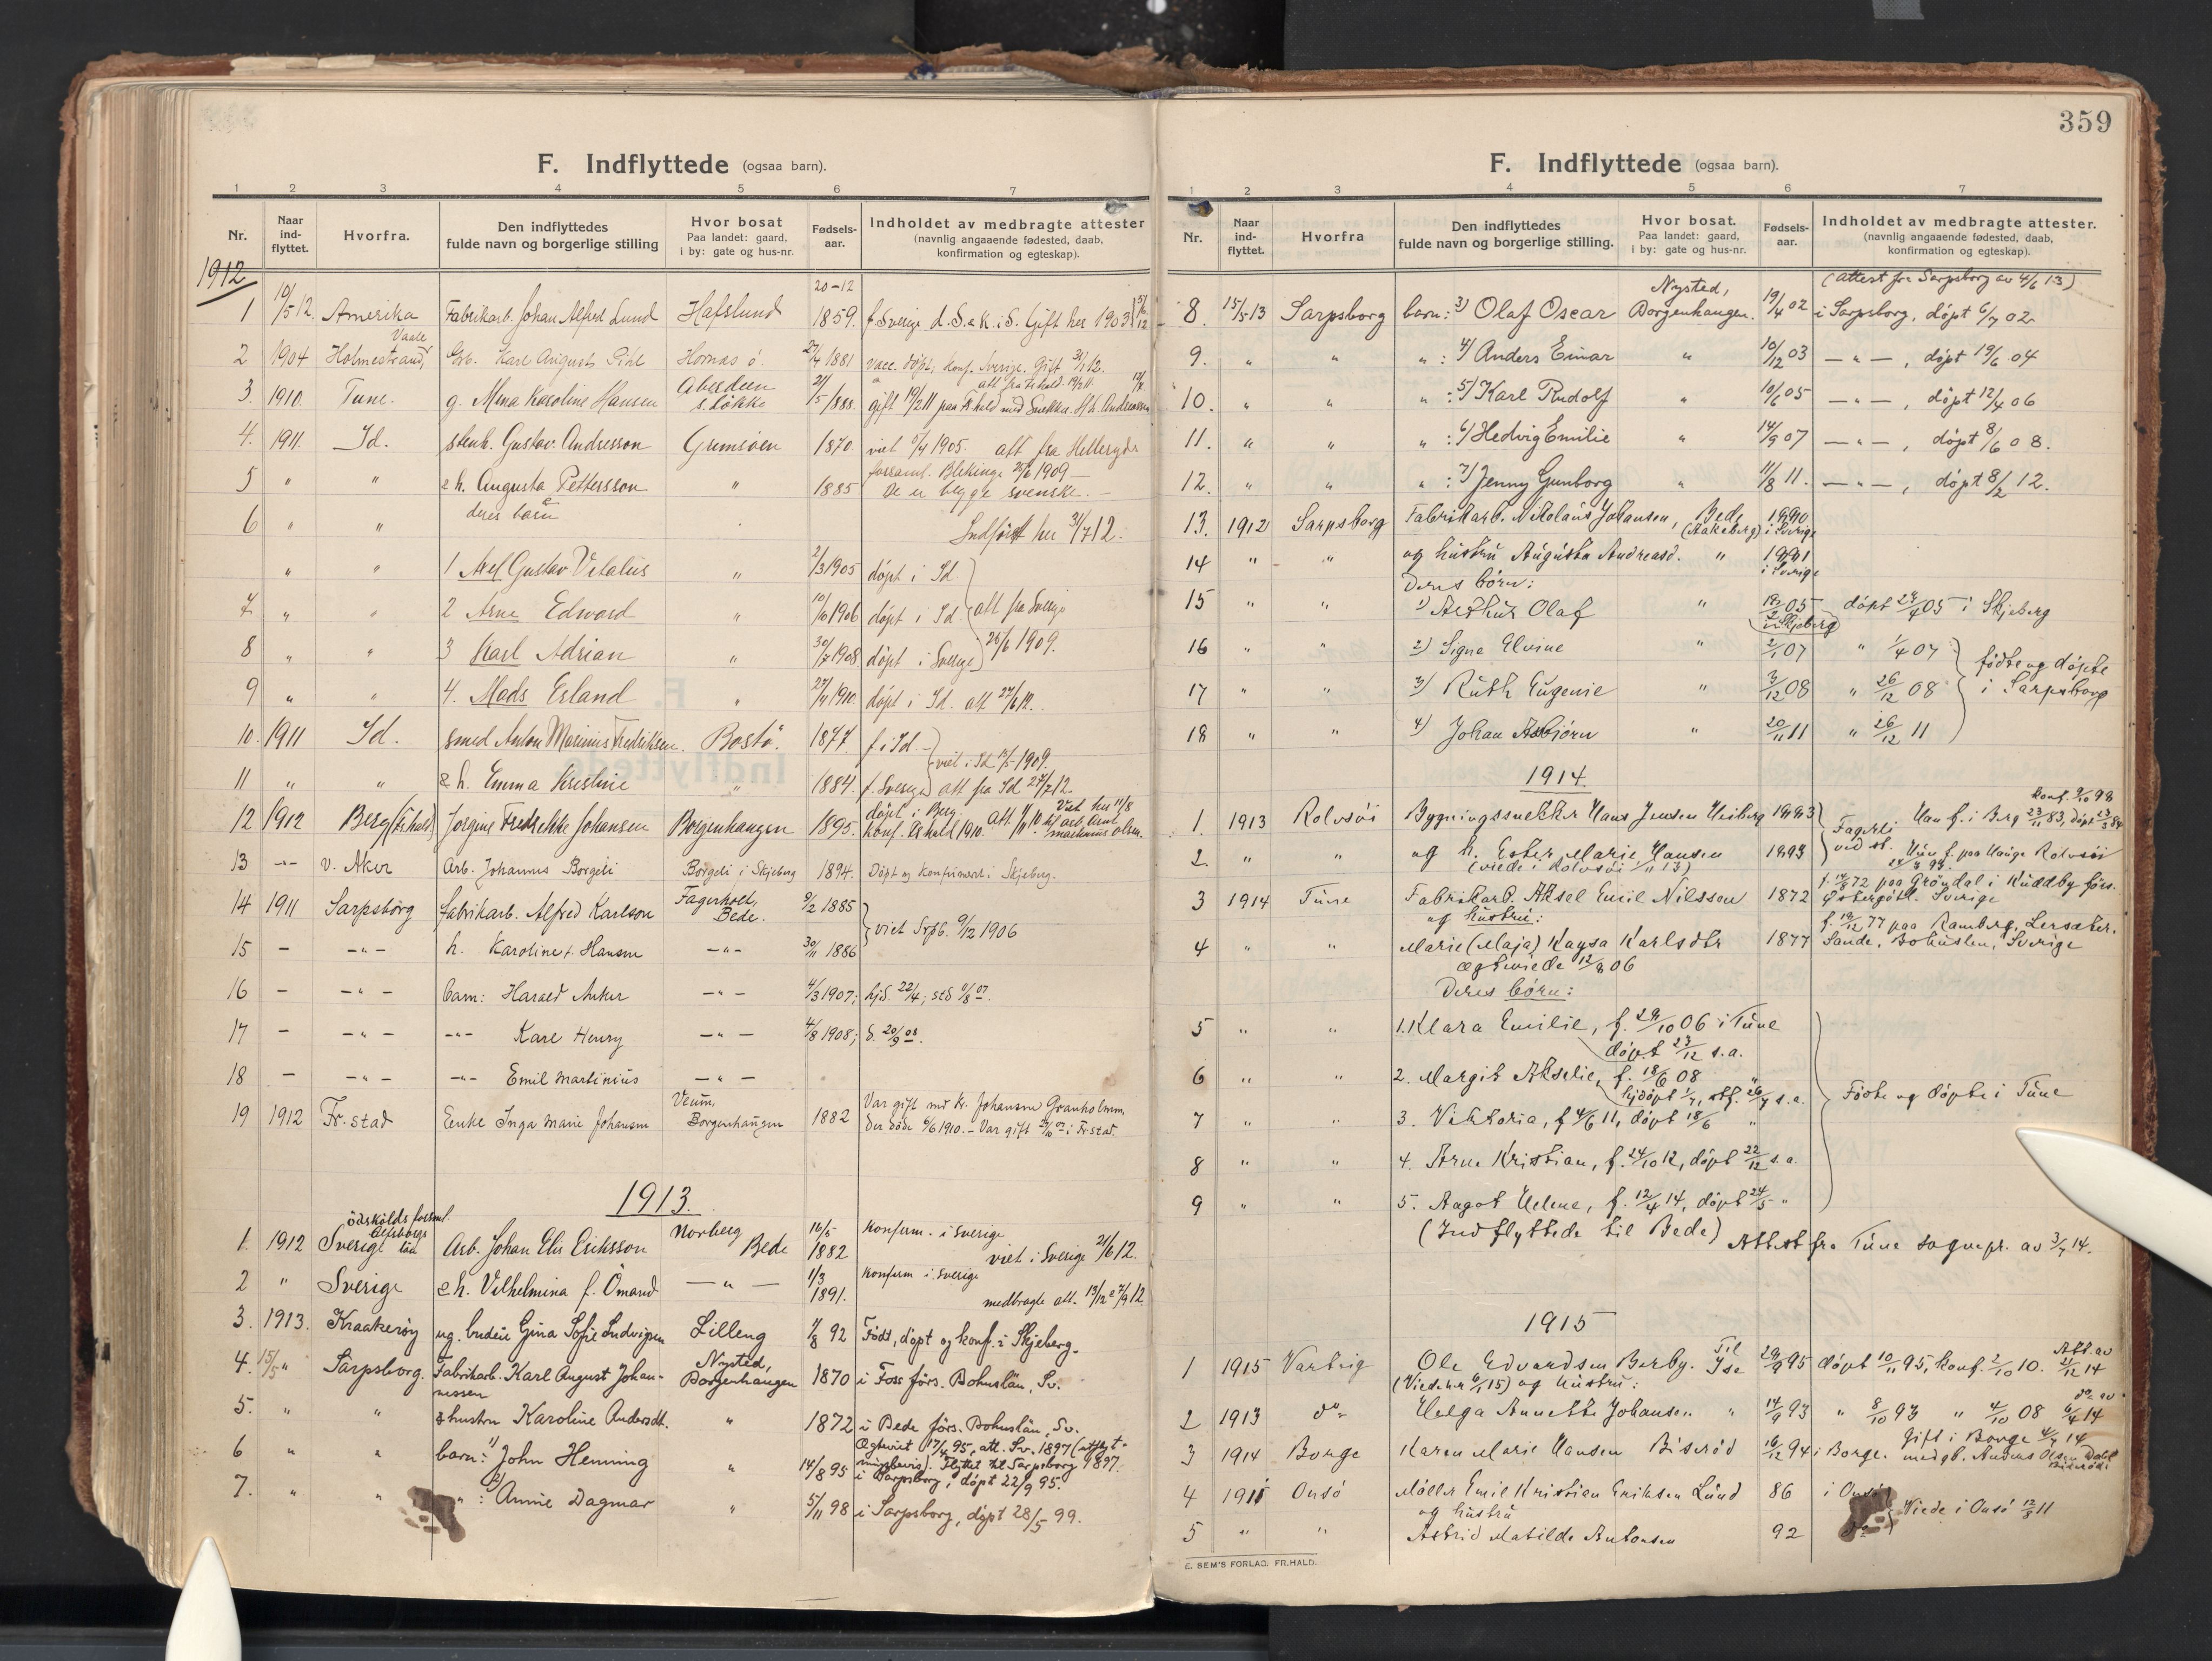 359
F. Indflyttede (ogsaa barn).
1 2 3 4 5 6 7
Nr. Naar ind-flyttet. Hvorfra. Den indflyttedes fulde navn og borgerlige stilling Hvor bosat Paa landet: gaard, i by: gate og hus-nr. Fødsels-aar. Indholdet av medbragte attester (navnlig angaaende fødested, daab, konfirmation og egteskap).
1912
20-12
1 10/5 12. Amerika Fabrikarb. Johan Alfred Lund Hafslund 1859. f. Sverige d. S. & K. i S. Gift her 1903
Vaale
2 1904 Holmestrand, Karl August Hornæs ö. 27/4 1881 vacc. döpt, konf. Sverige. Gift 31/1 12.
3. 1910. Tune. g. Mina Karoline Hansen Aberdeen s. Løkke 21/5 1888. gift 19/2 11 paa Fr.hald med Snekker H. h. Andreassen
4. 1911. Id. stenh. Gustav Andresson Grimsöen 1870. viet 1905. att fra Helleryds
forsaml. Blekinge 25/6 1909
5 " " & h. Augusta Pettersson " 1885 De er begge svenske. -
deres barn
6 " " Indført her 31/7 12.
" " 1 Axel Gustav Vitalius " 2/3 1905 döpt i Id
7 " " 2 Arne Edward " 10/10 1906 döpt i Id att fra Sverige
8 " " 3 Karl Adrian " 30/7 1908 döpt i Sverige 25/6 1909.
9 " " 4. Mads Erland " 27/4 1910. döpt i Id. att 27/6 12.
10. 1911 Id. smed Anton Marinius Fredriksen. Bostö. 1877. f. i Id -
viet i Id 1909.
11 " " & h. Emma Kristine " 1884. f. Sverige att fra Id 27/7 12.
12 1912 Berg (Fr.hald) Jørgine Fredrikke Johansen Borgenhaugen 1895. döpt i Berg. konf. Fr.hald 1910. Viet her 11/8 til arb. Emil Martinius Olsen.
13 -"- V. Aker Arb. Johannes Borgeli Borgeli i Skjeberg 1894. Döpt og konfirmert i Skjeberg.
14 1911 Sarpsborg fabrikarb. Alfred Karlson Fagerholt, Bede. 9/2 1885
viet Srpb. 9/12 1906
15 - -"- h. Karoline f. Hansen -"- 30/11 1886
16 - -"- barn: Harald Anker -"- 4/3 1907; hjd. 22/4; std 11/8 07.
17 - -"- -"- Karl Henry -"- 4/8 1908; d. 20/9 08.
18 - -"- -"- Emil Martinius -"-
19 1912 Fr.stad Enke Inga Marie Johansen Veum, Borgenhaugen 1882 Var gift med Kr. Johansen Granholmen
der döde 6/6 1910. - Var gift i Fr.stad.
1913.
ödskölds forsml.
Elfsborgs
1. 1912 Sverige län Arb. Johan Elis Eriksson Norberg Bede 16/5 1882 Konfirm. i Sverige
viet i Sverige 21/6 12.
2 " Sverige & h. Vilhelmina f. Ömand -"- 1/3 1891. Konfirm i Sverige
medbragte att. 13/12 & 7/9 12
3. 1913. Kraakerøy ug. budeie Gina Sofie Ludvigsen Lilleng 1/8 92 Født, døpt og konf. i Skjeberg.
4. 15/5 " Sarpsborg. Fabrikarb. Karl August Johan-nessen Nysted, Borgenhaugen 1870 i Foss førs. Bohuslän, Sv.
5. " " & hustru Karoline Andersdt. " 1872 i Bede førs. Bohuslän, Sv.
Ægteviet 17/4 95, att. Sv. 1897 (utflyt-
ningsbevis). Flyttet til Sarpsborg 1897.
6 " " barn: 1) John Henning " 14/8 95 i Sarpsborg, döpt 22/9 95.
7. " " " : 2) Annie Dagmar " 5/11 98 i Sarpsborg, döpt 28/5 99.
F. Indflyttede (ogsaa barn).
1 2 3 4 5 6 7
Nr. Naar ind-flyttet. Hvorfra Den indflyttedes fulde navn og borgerlige stilling. Hvor bosat. Paa landet: gaard, i by: gate og hus-nr. Fødsels-aar. Indholdet av medbragte attester. (navnlig angaaende fødested, daab, konfirmation og egteskap).
(attest fra Sarpsborg av 4/6 13)
8. 15/5 13 Sarpsborg barn: 3) Olaf Oscar Nysted, Borgenhaugen. 19/4 02 i Sarpsborg, döpt 6/7 02
9. " " " : 4) Anders Einar " 10/12 03 -"-, döpt 19/6 04
10. " " " : 5) Karl Rudolf " 10/6 05 -"-, döpt 12/4 06
11. " " " : 6) Hedvig Emilie " 14/9 07 -"-, döpt 8/6 08.
12. " " " : 7) Jenny Gunborg " 11/8 11. -"-, döpt 8/2 12.
13. 1912 Sarpsborg Fabrikarb. Nikolaus Johansen, Bede (Aakeberg) i Sverige
14 " " og hustru Augusta Andreasd. " i Sverige
Deres börn:
15 " " 1) Arthur Olaf " 05 i Skjeberg döpt 05 i Skjeberg
16 " " 2) Signe Elvine " 2/1 07 " 1/4 07
födte og döpte
17 " " 3) Ruth Eugenie " 3/12 08 " 26/12 08 i Sarpsborg
18 " " 4) Johan Asbjörn " 20/11 11 " 26/12 11
1914.
konf. 9/10 98
1. 1913 Rolvsöi Bygningssnekker Hans Jensen Heiberg Han f. i Berg 23/11 83, döpt 23/3 84
Fagerli ved st.
2. " " og h. Ester Marie Hansen Hun f. paa Hauge Rolvsöi
(viede i Rolvsöi 13)
3 1914 Tune Fabrikarb. Aksel Emil Nilsson 1872 f. 14/8 72 paa Gröndal i Kuddby förs.
og hustru: Østergötl. Sverige
4 " " Marie (Maja) Kaysa Karlsdtr 1877 f. 19/12 77 paa Ramberg, Lersæter.
Sande, Bohuslen, Sverige
ægteviede 12/8 06
Deres börn:
5 " " 1. Klara Emilie, f. 29/10 06 i Tune
döpt 23/12 s.a.
6 " " 2. Margit Akselie, f. 18/6 08 "
hjdöpt 1/7, stf. 26/7 s.a. Födte og döpte i Tune
7 " " 3. Viktoria, f 4/6 11, döpt 18/6 "
8 " " 4. Arne Kristian, f. 24/10 12, döpt 22/12 s.a.
9 " " 5. Aagot Helene, f. 12/4 14, döpt 24/5 "
(Indflyttede til Bede) Attest fra Tune sognepr. av 3/7 14.
1915
1 1915 Varteig Ole Edvardsen Berby. Til Ise 29/9 95 döpt 10/11 95, konf. 2/10 10. Att. av 21/12 14
(Viede her 6/1 15) og hustru:
2 1913 do Helga Annette Johansen " 14/9 93 " 8/10 93 " 4/10 08 do av 6/4 14
Gift i Borge 4/7 14
3 1914 Borge Karen Marie Hansen Biseröd 16/12 94 i Borge. med gb. Anders Olsen Dahl Biseröd.
4 1911 Onsö Møller Emil Kristian Eriksen Lund 86 i Onsö
og hustru Viede i Onsö 12/3 11
5 " " Astrid Matilde Antonsen 92 do
E. SEM'S FORLAG. FR.HALD.